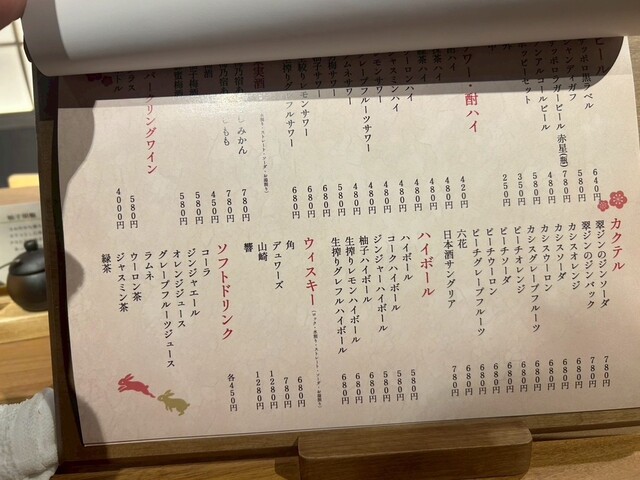 ビール
ッポロ黒ラベル 640円
ャンディガフ 580円
ッポロラガービール 赤星(瓶) 780円
ンアルコールビール 480円
ッピーセット 580円
350円
250円
ワー・酎ハイ
ハイ 420円
茶ハイ 480円
ーロンハイ 480円
ャスミンハイ 480円
モンサワー 480円
レープフルーツサワー 480円
ムネサワー 480円
梅サワー 580円
子サワー 680円
搾りレモンサワー 680円
搾りグレフルサワー 680円
実酒
みかん 780円
もも 780円
酒 450円
580円
580円
パークリングワイン
ラス 580円
トル 4080円
カクテル
翠ジンのジンソーダ 780円
翠ジンのジンバック 780円
カシスオレンジ 680円
カシスソーダ 680円
カシスウーロン 680円
カシスグレープフルーツ 680円
ピーチオレンジ 680円
ピーチソーダ 680円
ピーチウーロン 680円
ピーチグレープフルーツ 680円
六花
日本酒サングリア 780円
ハイボール
ハイボール 580円
コークハイボール 580円
ジンジャーハイボール 580円
柚子ハイボール 680円
生搾りレモンハイボール 680円
生搾りグレフルハイボール 680円
ウィスキー
角 680円
デュワーズ 780円
山崎 1280円
響 1280円
ソフトドリンク
各450円
コーラ
ジンジャエール
オレンジジュース
グレープフルーツジュース
ラムネ
ウーロン茶
ジャスミン茶
緑茶